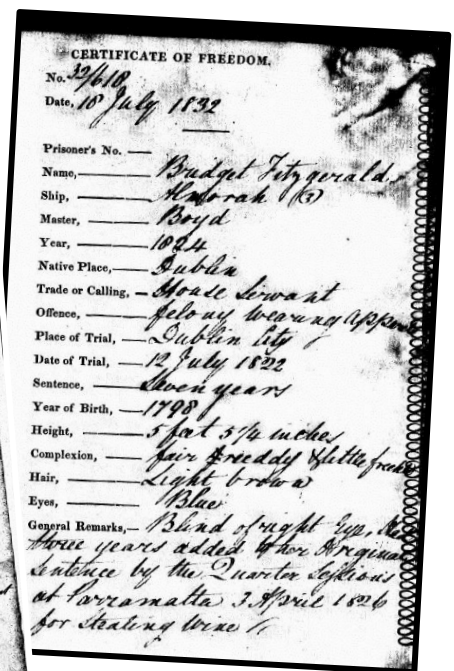 CERTIFICATE OF FREEDOM.
No. 32/618
Date, 18 July 1832
Prisoner's No. —
Name, Bridget Fitzgerald
Ship, Almorah (3)
Master, Boyd
Year, 1824
Native Place, Dublin
Trade or Calling, House Servant
Offence, felony wearing
Place of Trial, Dublin City
Date of Trial, 12 July 1822
Sentence, Seven years
Year of Birth, 1798
Height, 5 feet 5 1/4 inches
Complexion, fair & little
Hair, Light brown
Eyes, Blue
General Remarks,— Blind of right Eye,
three years added to her Original
Sentence by the Quarter Sessions
at Parramatta 3 April 1826
for Stealing Wine